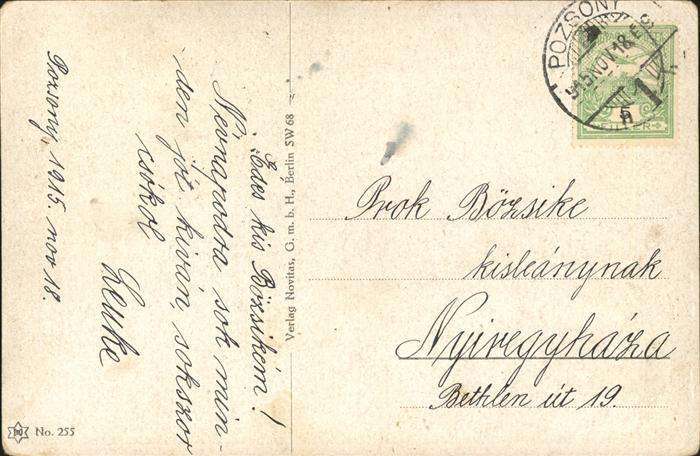 POZSONY
915 NOV 18. E 9
5
FILLER
Édes kis Bözsikém!
Nevnapodra sok min-
den jót kiván, sokszor
csókol
Lenke
Pozsony, 1915. nov 18.
Verlag Novitas, G. m. b. H., Berlin SW 68
Prok Bözsike
kisleánynak
Nyiregyháza
Bethlen út 19.
No. 255